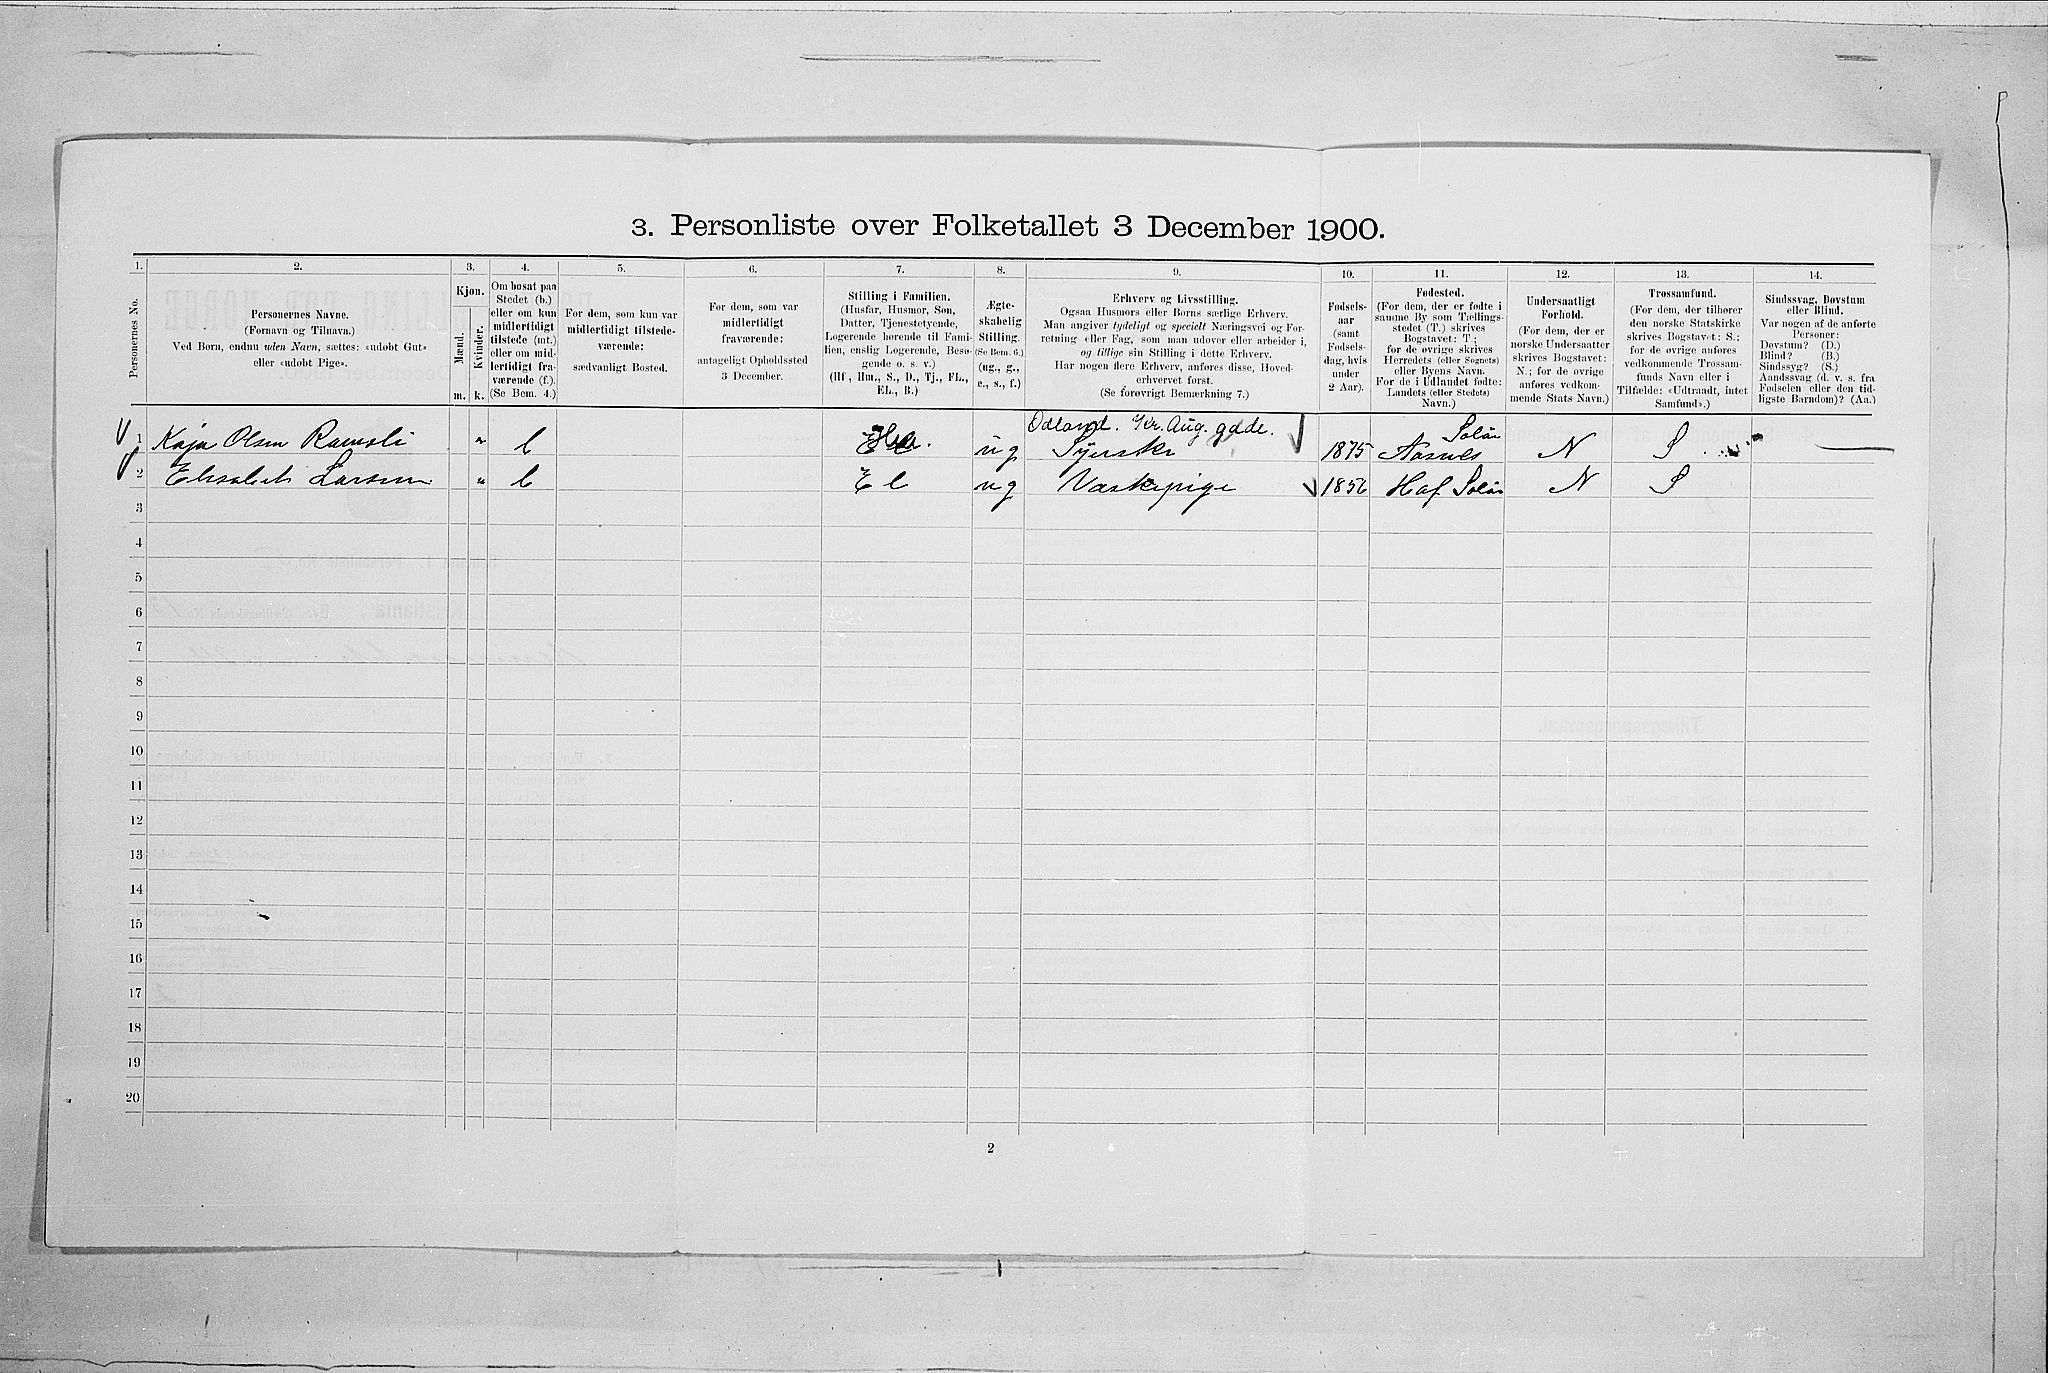 3. Personliste over Folketallet 3 December 1900.
1. 2. 3. 4. 5. 6. 7. 8. 9. 10. 11. 12. 13. 14.
Personernes No.
Personernes Navne.
(Fornavn og Tilnavn.)
Ved Børn, endnu uden Navn, sættes: «udøbt Gut»
eller «udøbt Pige».
Kjøn.
Mænd.
Kvinder.
m. k.
Om bosat paa
Stedet (b.)
eller om kun
midlertidigt
tilstede (mt.)
eller om mid-
lertidigt fra-
værende (f.).
(Se Bem. 4.)
For dem, som kun var
midlertidigt tilstede-
værende:
sædvanligt Bosted.
For dem, som var
midlertidigt
fraværende:
antageligt Opholdssted
3 December.
Stilling i Familien.
(Husfar, Husmor, Søn,
Datter, Tjenestetyende,
Logerende hørende til Fami-
lien, enslig Logerende, Besø-
gende o. s. v.)
(Hf., Hm., S., D., Tj., FL.,
EL., B.)
Ægte-
skabelig
Stilling.
(Se Bem. 6.)
(ug., g.,
e., s., f.)
Erhverv og Livsstilling.
Ogsaa Husmors eller Børns særlige Erhverv.
Man angiver tydeligt og specielt Næringsvei og For-
retning eller Fag, som man udøver eller arbeider i,
og tillige sin Stilling i dette Erhverv.
Har nogen flere Erhverv, anføres disse, Hoved-
erhvervet først.
(Se forøvrigt Bemærkning 7.)
Fødsels-
aar
(samt
Fødsels-
dag, hvis
under
2 Aar).
Fødested.
(For dem, der er fødte i
samme By som Tællings-
stedet (T.) skrives
Bogstavet: T.;
for de øvrige skrives
Herredets (eller Sognets)
eller Byens Navn.
For de i Udlandet fødte:
Landets (eller Stedets)
Navn.)
Undersaatligt
Forhold.
(For dem, der er
norske Undersaatter
skrives Bogstavet:
N.; for de øvrige
anføres vedkom-
mende Stats Navn.)
Trossamfund.
(For dem, der tilhører
den norske Statskirke
skrives Bogstavet: S.;
for de øvrige anføres
vedkommende Trossam-
funds Navn eller i
Tilfælde: «Udtraadt, intet
Samfund».)
Sindssvag, Døvstum
eller Blind.
Var nogen af de anførte
Personer:
Døvstum? (D.)
Blind? (B.)
Sindssyg? (S.)
Aandssvag (d. v. s. fra
Fødselen eller den tid-
ligste Barndom)? (Aa.)
Odland. Kr. Aug. gade.
1 Kaja Olsen " b ug Syerske 1875 Aasnes Solør N S
2 Elisabeth Larsen " b El ug Vaskepige 1856 Hof Solør N S
3
4
5
6
7
8
9
10
11
12
13
14
15
16
17
18
19
20
2